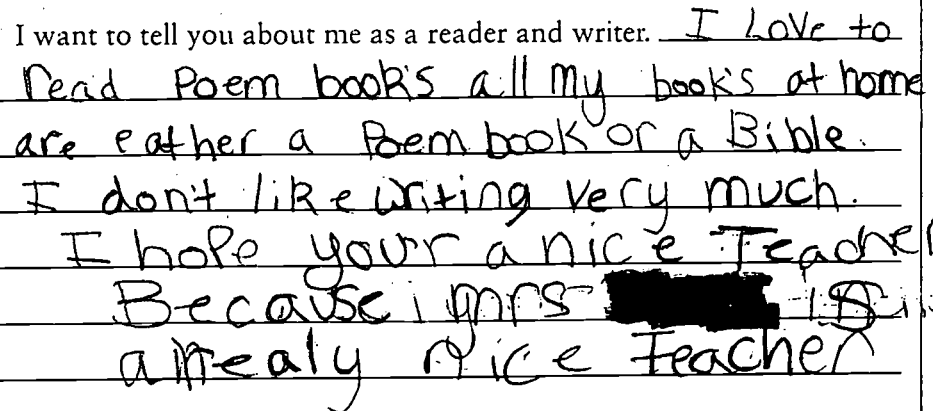 I want to tell you about me as a reader and writer. I Love to
read Poem book's all my book's at home
are eather a Poem book or a Bible.
I don't like writing very much.
I hope your a nice Teacher
Because mrs is
a realy nice teacher